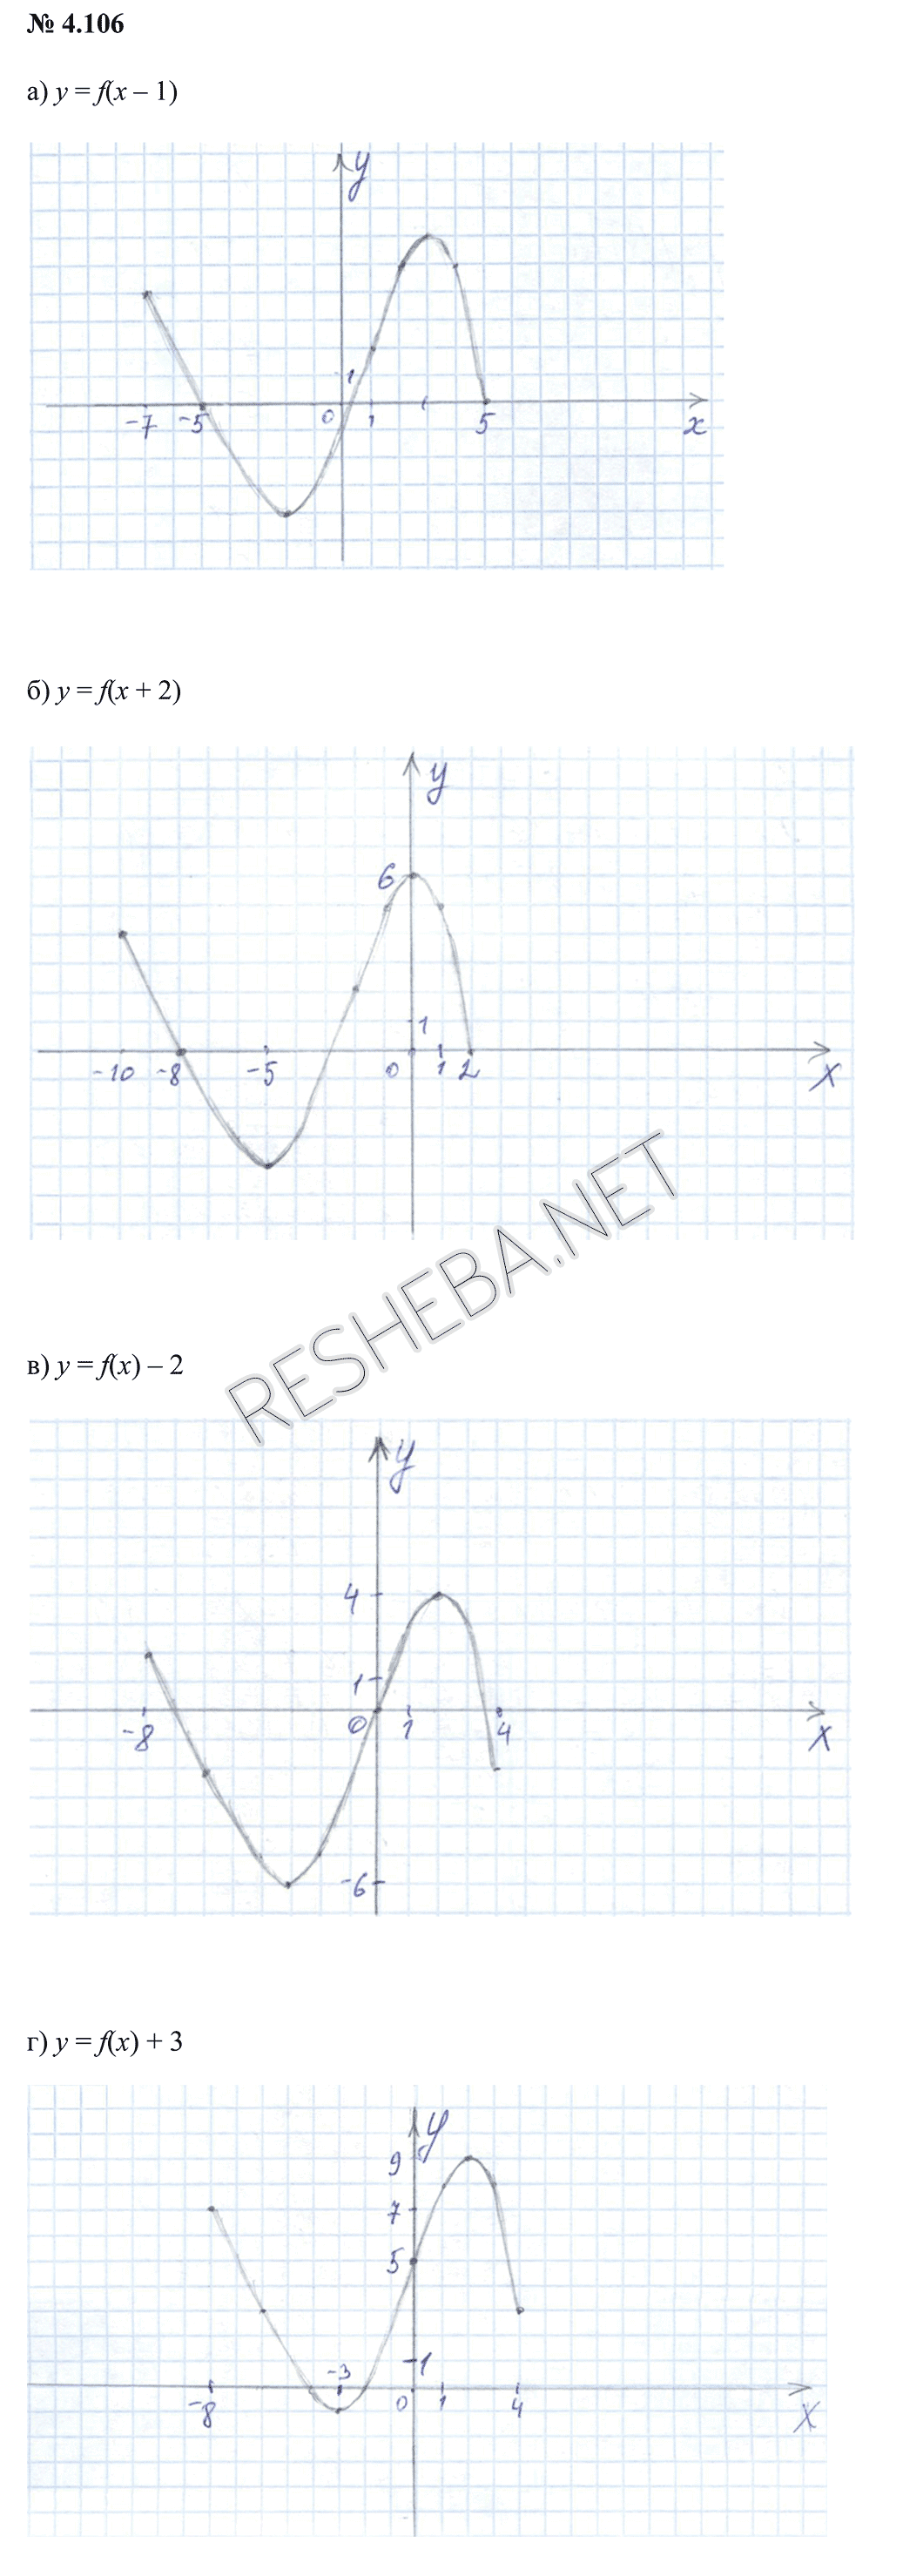 № 4.106
а) y = f(x – 1)
y
1
-7 -5 0 1 5 x
б) y = f(x + 2)
y
6
1
-10 -8 -5 0 1 2 x
RESHEBA.NET
в) y = f(x) – 2
y
4
1
-8 0 1 4 x
-6
г) y = f(x) + 3
y
9
7
5
1
-3
-8 0 1 4 x